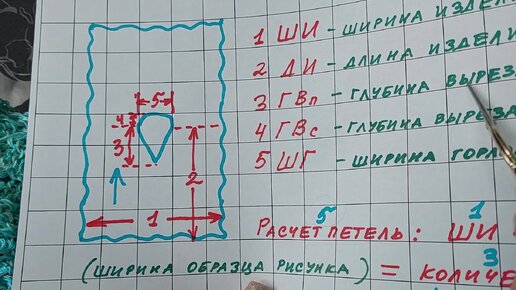 1 ШИ - ШИРИНА ИЗДЕЛИ
2 ДИ - ДЛИНА ИЗДЕЛИ
3 ГВп - ГЛУБИНА ВЫРЕЗА
4 ГВс - ГЛУБИНА ВЫРЕЗА
5 ШГ - ШИРИНА ГОРЛО
5
4
3
2
1
5 1
РАСЧЕТ ПЕТЕЛЬ: ШИ
3
(ШИРИНА ОБРАЗЦА РИСУНКА) = КОЛИЧЕ